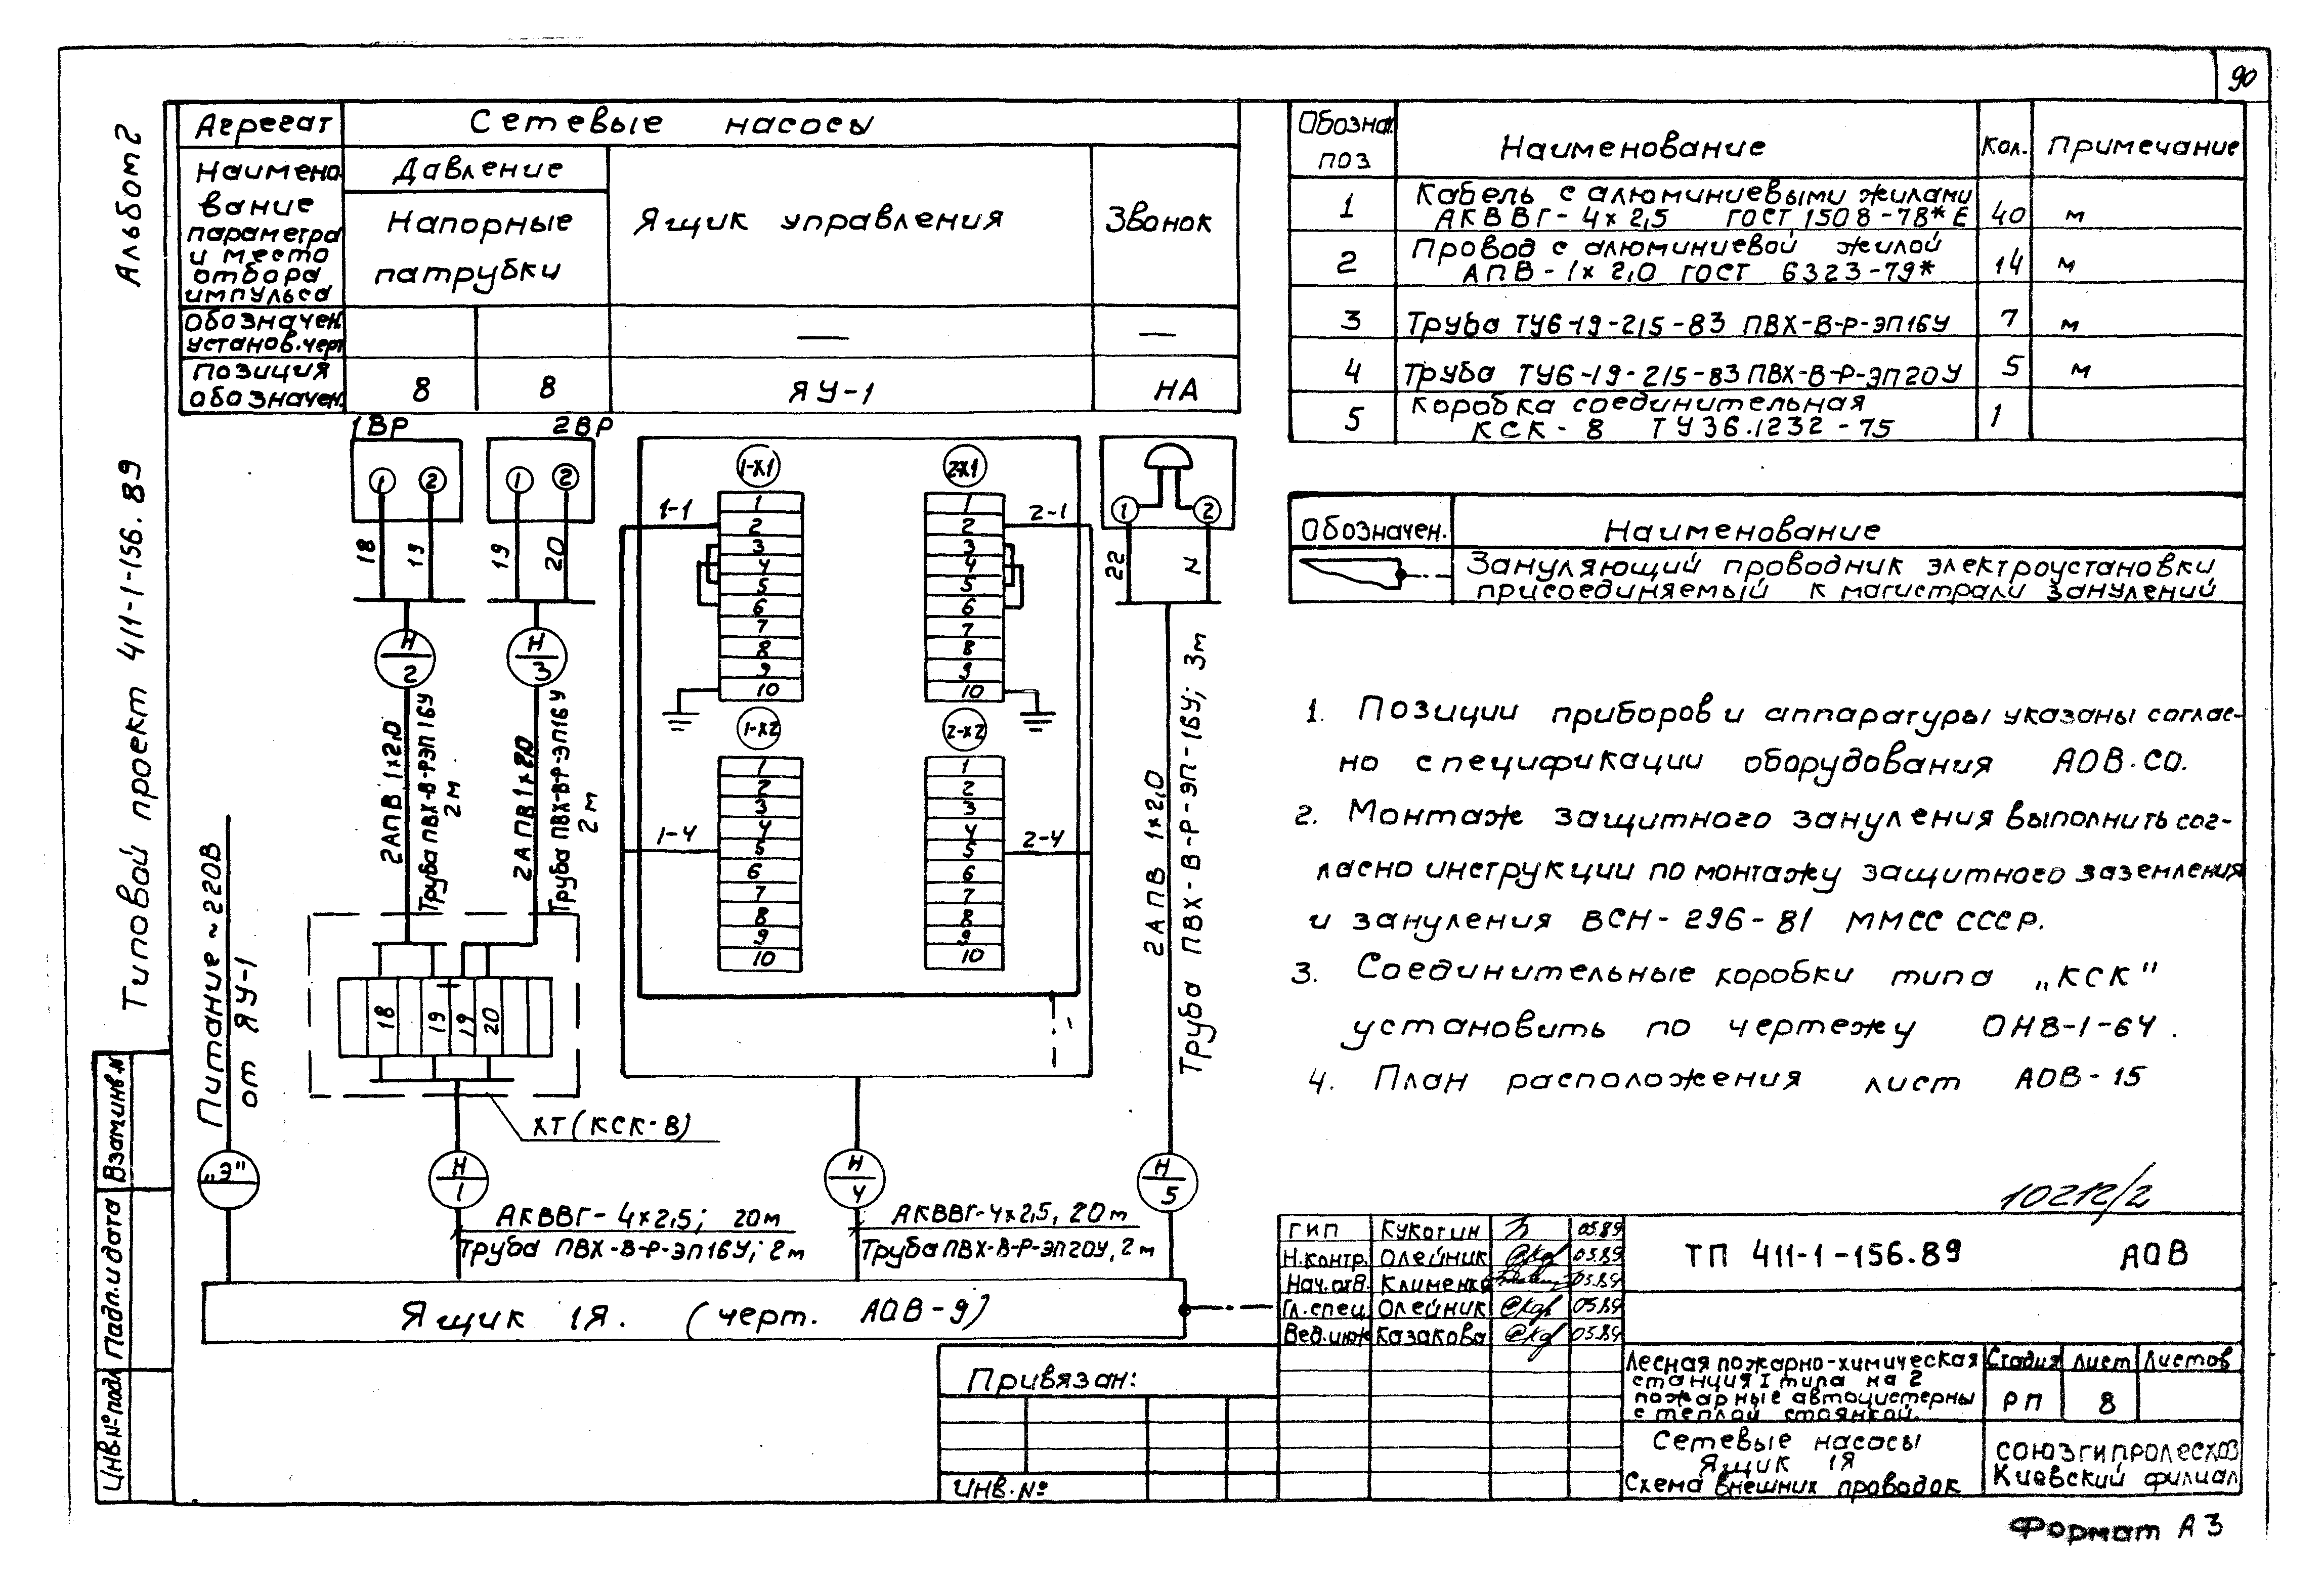 90
Альбом 2
Типовой проект 411-1-156.89
Агрегат
Сетевые насосы
Наимено-
вание
параметра
и место
отбора
импульса
Давление
Напорные
патрубки
Ящик управления
Звонок
Обозначен.
установ.черт
—
—
Позиция
обозначен.
8
8
ЯУ-1
НА
1ВР
2ВР
1
2
1
2
18
19
19
20
Н
2
Н
3
2АПВ 1х2,0
Труба ПВХ-В-РЭП16У
2м
2АПВ 1х2,0
Труба ПВХ-В-Р-ЭП16У
2м
1-Х1
1
2
3
4
5
6
7
8
9
10
1-1
2-Х1
1
2
3
4
5
6
7
8
9
10
2-1
1-Х2
1
2
3
4
5
6
7
8
9
10
1-4
2-Х2
1
2
3
4
5
6
7
8
9
10
2-4
1
2
22
N
2АПВ 1х2,0
Труба ПВХ-В-Р-ЭП-16У; 3м
Питание ~220В
от ЯУ-1
18
19
19
20
ХТ(КСК-8)
"Э"
Н
1
Н
4
Н
5
АКВВГ-4х2,5; 20м
Труба ПВХ-В-Р-ЭП16У; 2м
АКВВГ-4х2,5, 20м
Труба ПВХ-В-Р-ЭП20У, 2м
Ящик 1Я. (черт. АОВ-9)
Обозна.
поз
Наименование
Кол.
Примечание
1
Кабель с алюминиевыми жилами
АКВВГ-4х2,5 ГОСТ 1508-78*Е
40
м
2
Провод с алюминиевой жилой
АПВ-1х2,0 ГОСТ 6323-79*
14
м
3
Труба ТУ6-19-215-83 ПВХ-В-Р-ЭП16У
7
м
4
Труба ТУ6-19-215-83 ПВХ-В-Р-ЭП20У
5
м
5
Коробка соединительная
КСК-8 ТУ36.1232-75
1
Обозначен.
Наименование
Зануляющий проводник электроустановки
присоединяемый к магистрали занулений
1. Позиции приборов и аппаратуры указаны соглас-
но спецификации оборудования АОВ.СО.
2. Монтаж защитного зануления выполнить сог-
ласно инструкции по монтажу защитного заземления
и зануления ВСН-296-81 ММСС СССР.
3. Соединительные коробки типа „КСК"
установить по чертежу ОН8-1-64.
4. План расположения лист АОВ-15
10212/2
ГИП Кукотин 05.89
Н.контр. Олейник 05.89
Нач.отв. Клименко 05.89
Гл.спец. Олейник 05.89
Вед.инж Казакова 05.89
ТП 411-1-156.89 АОВ
Лесная пожарно-химическая
станция I типа на 2
пожарные автоцистерны
с теплой стоянкой.
Стадия
Лист
Листов
РП
8
Сетевые насосы
Ящик 1Я
Схема внешних проводок
СОЮЗГИПРОЛЕСХОЗ
Киевский филиал
Привязан:
Инв.№
Взам.инв.№
Подп.и дата
Инв.№ подл
Формат А3